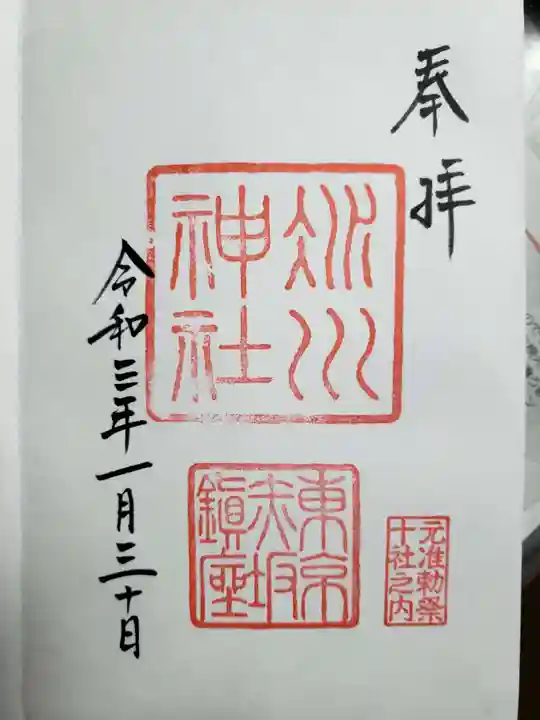 奉拝
氷川
神社
東京
赤坂
鎮座
元准勅祭
十社之内
令和三年一月三十日